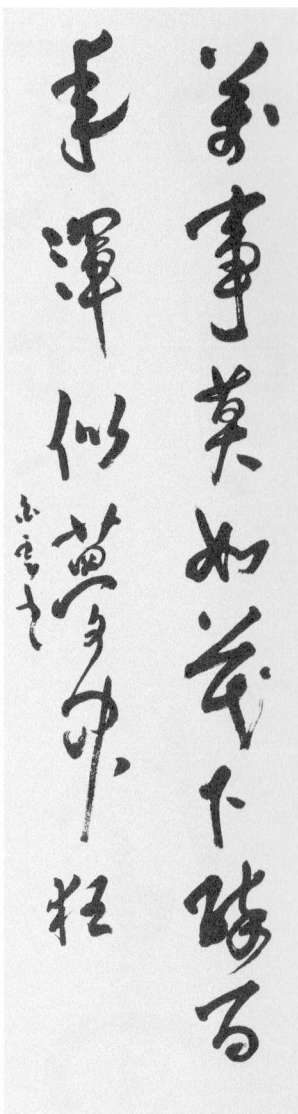 萬事莫如花下醉百
年渾似夢中狂